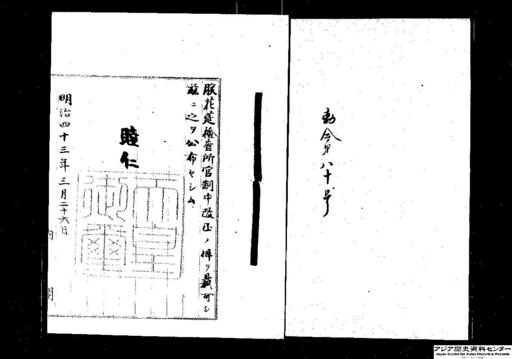 勅令第八十号
朕花莚検査所官制中改正ノ件ヲ裁可シ
茲ニ之ヲ公布セシム
睦仁
天皇御璽
明治四十三年三月二十六日
内閣
アジア歴史資料センター
Japan Center for Asian Historical Records